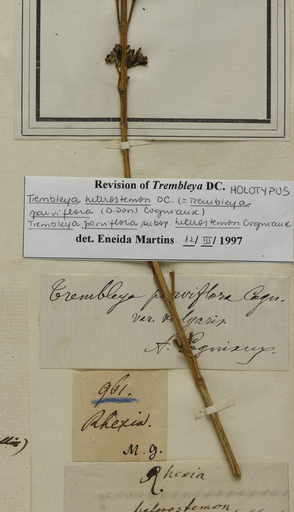 Revision of Trembleya DC. HOLOTYPUS
Trembleya heterostemon DC. (= Trembleya
parviflora (D. Don) Cogniaux)
Trembleya parviflora subsp. heterostemon Cogniaux
det. Eneida Martins 12/III/1997
Trembleya parviflora Cogn.
var. vulgaris.
A. Cogniaux.
961.
Rhexia.
M. g.
Rhexia
heterostemon